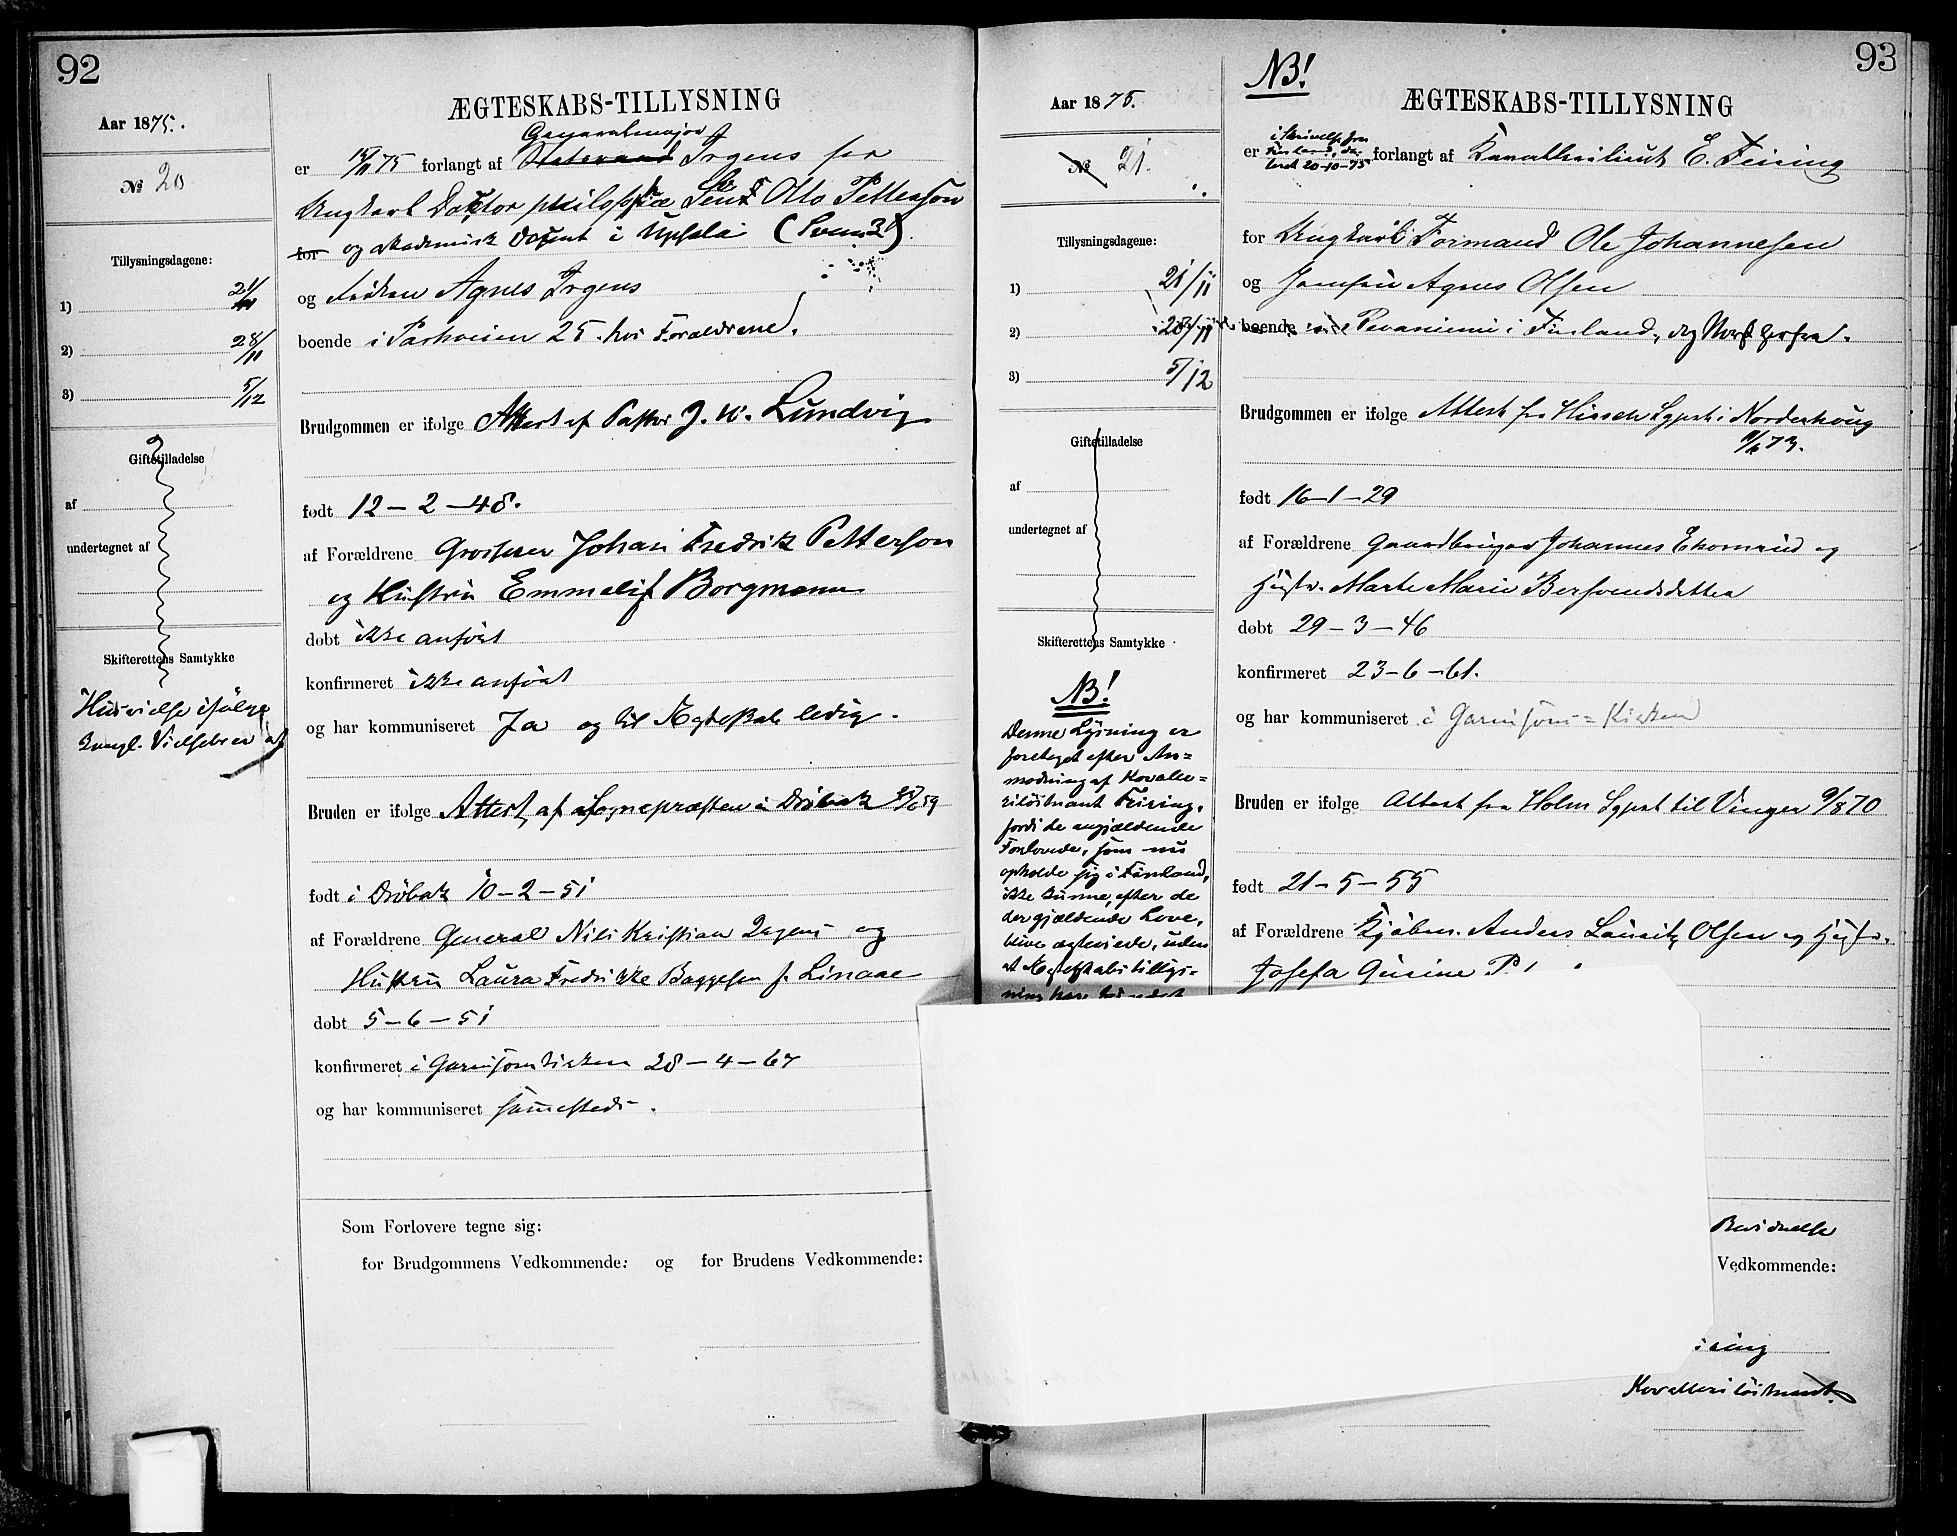 92
Aar 1875.
№ 20
Tillysningsdagene:
1) 21/11
2) 28/11
3) 5/12
Giftetilladelse
af
undertegnet af
Skifterettens Samtykke
Husvielse ifølge
kongl. Vielsebrev af
ÆGTESKABS-TILLYSNING
Generalmajor
er /11 75 forlangt af Statsraad Irgens for
Ungkarl Doctor philosophiæ Otto Petterson
for og akademisk Docent i Upsala (Svensk)
og Frøken Agnes Irgens
boende i Parkveien 25 hos Forældrene.
Brudgommen er ifølge Attest af Pastor J. W. Lundvig
født 12-2-48.
af Forældrene Grosserer Johan Fredrik Petterson
og Hustru Emmeli f Borgmann
døbt ikke anført
konfirmeret ikke anført
og har kommuniseret Ja og til Ægteskab ledig.
Bruden er ifølge Attest af Sognepræsten i Drøbak
født i Drøbak 10-2-51
af Forældrene General Nils Kristian Irgens og
Hustru Laura Fredrikke Baggesen f. Linaae
døbt 5-6-51
konfirmeret i Garnisonskirken 28-4-67
og har kommuniseret samesteds.
Som Forlovere tegne sig:
for Brudgommens Vedkommende: og for Brudens Vedkommende:
93
NB!
Aar 1875.
№ 21.
Tillysningsdagene:
1) 21/11
2) 28/11
3) 5/12
Giftetilladelse
af
undertegnet af
Skifterettens Samtykke
NB!
Denne Lysning er
foretaget efter An=
modning af Kavalle=
riløitnant Feiring,
fordi de angjældende
Forlovede, som nu
opholde sig i Finland,
ikke kunne, efter de
der gjældende Love,
blive ægteviede, uden
at Ægteskabstillys=
ning
ÆGTESKABS-TILLYSNING
i Skrivelse fra
Finland, da-
teret 20-10-75
er forlangt af Kavallerilieut E. Feiring
for Ungkarl Formand Ole Johannesen
og Jomfru Agnes Olsen
boende i Finland, dog Norsk herfra.
Brudgommen er ifølge Attest fra Sgprst i Norderhoug
73.
født 16-1-29
af Forældrene Gaardbruger Johannes og
Hustr. Marte Marie Bersvendsdatter
døbt 29-3-46
konfirmeret 23-6-61.
og har kommuniseret i Garnisons=Kirken
Bruden er ifølge Attest fra Holm Sgprst til Vinger 9/8 70
født 21-5-55
af Forældrene Kjøbm. Anders Lauritz Olsen og Hustr.
Josefa Gurine P
Bevidnelse
Vedkommende:
iring
Kavalleriløitnant.